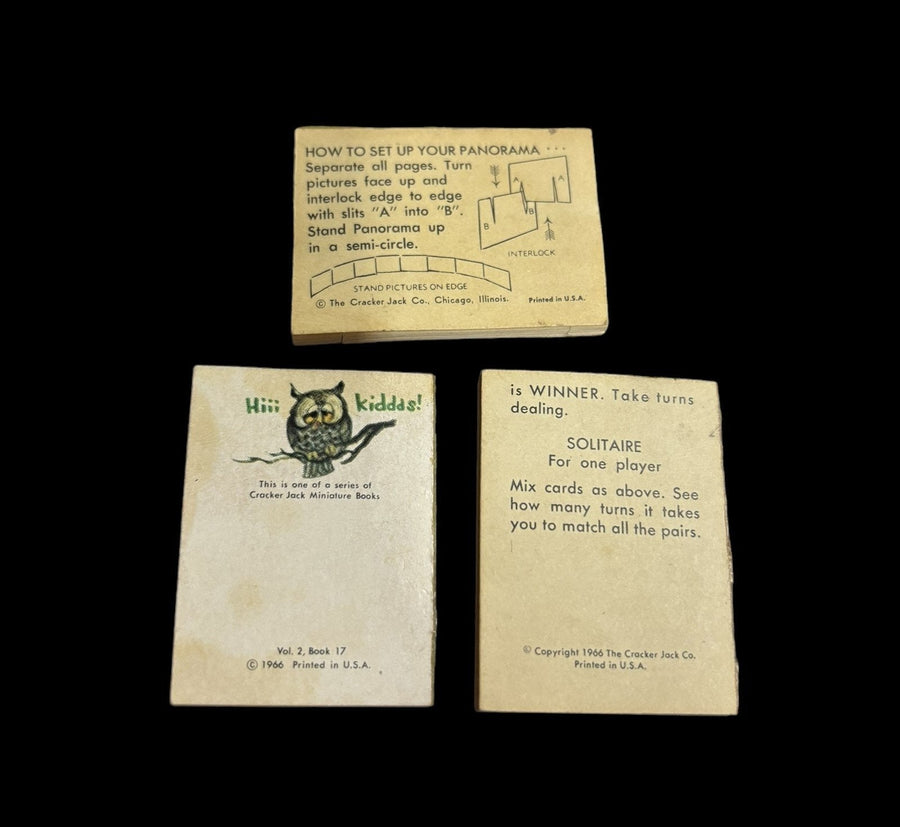 HOW TO SET UP YOUR PANORAMA ...
Separate all pages. Turn
pictures face up and
interlock edge to edge
with slits "A" into "B".
Stand Panorama up
in a semi-circle.
A
A
B
B
INTERLOCK
STAND PICTURES ON EDGE
© The Cracker Jack Co., Chicago, Illinois. Printed in U.S.A.
Hiii kiddds!
This is one of a series of
Cracker Jack Miniature Books
Vol. 2, Book 17
© 1966 Printed in U.S.A.
is WINNER. Take turns
dealing.
SOLITAIRE
For one player
Mix cards as above. See
how many turns it takes
you to match all the pairs.
© Copyright 1966 The Cracker Jack Co.
Printed in U.S.A.